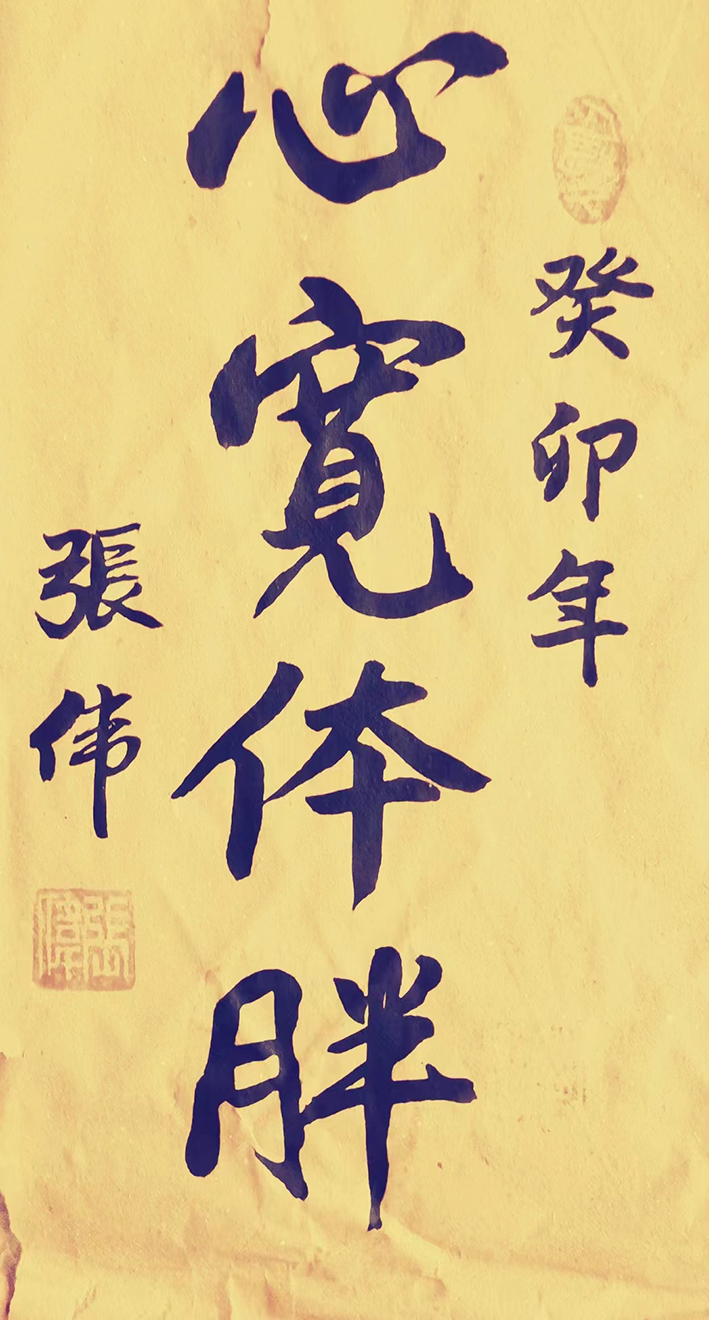 癸卯年
心寬体胖
張伟